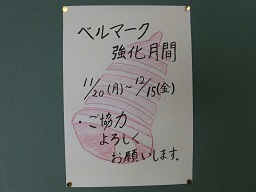 ベルマーク
強化月間
11/20(月)~12/15(金)
・ご協力
よろしく
お願いします。